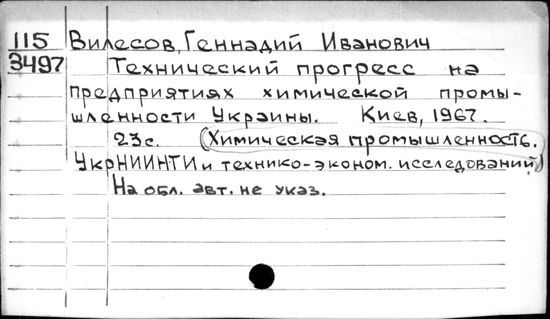 115 Вилесов, Геннадий Иванович
3497 Технический прогресс на
предприятиях химической промы-
шленности Украины. Киев, 1967.
23с. (Химическая промышленность.
УкрНИИНТИ и технико-эконом. исследований)
На обл. авт. не указ.